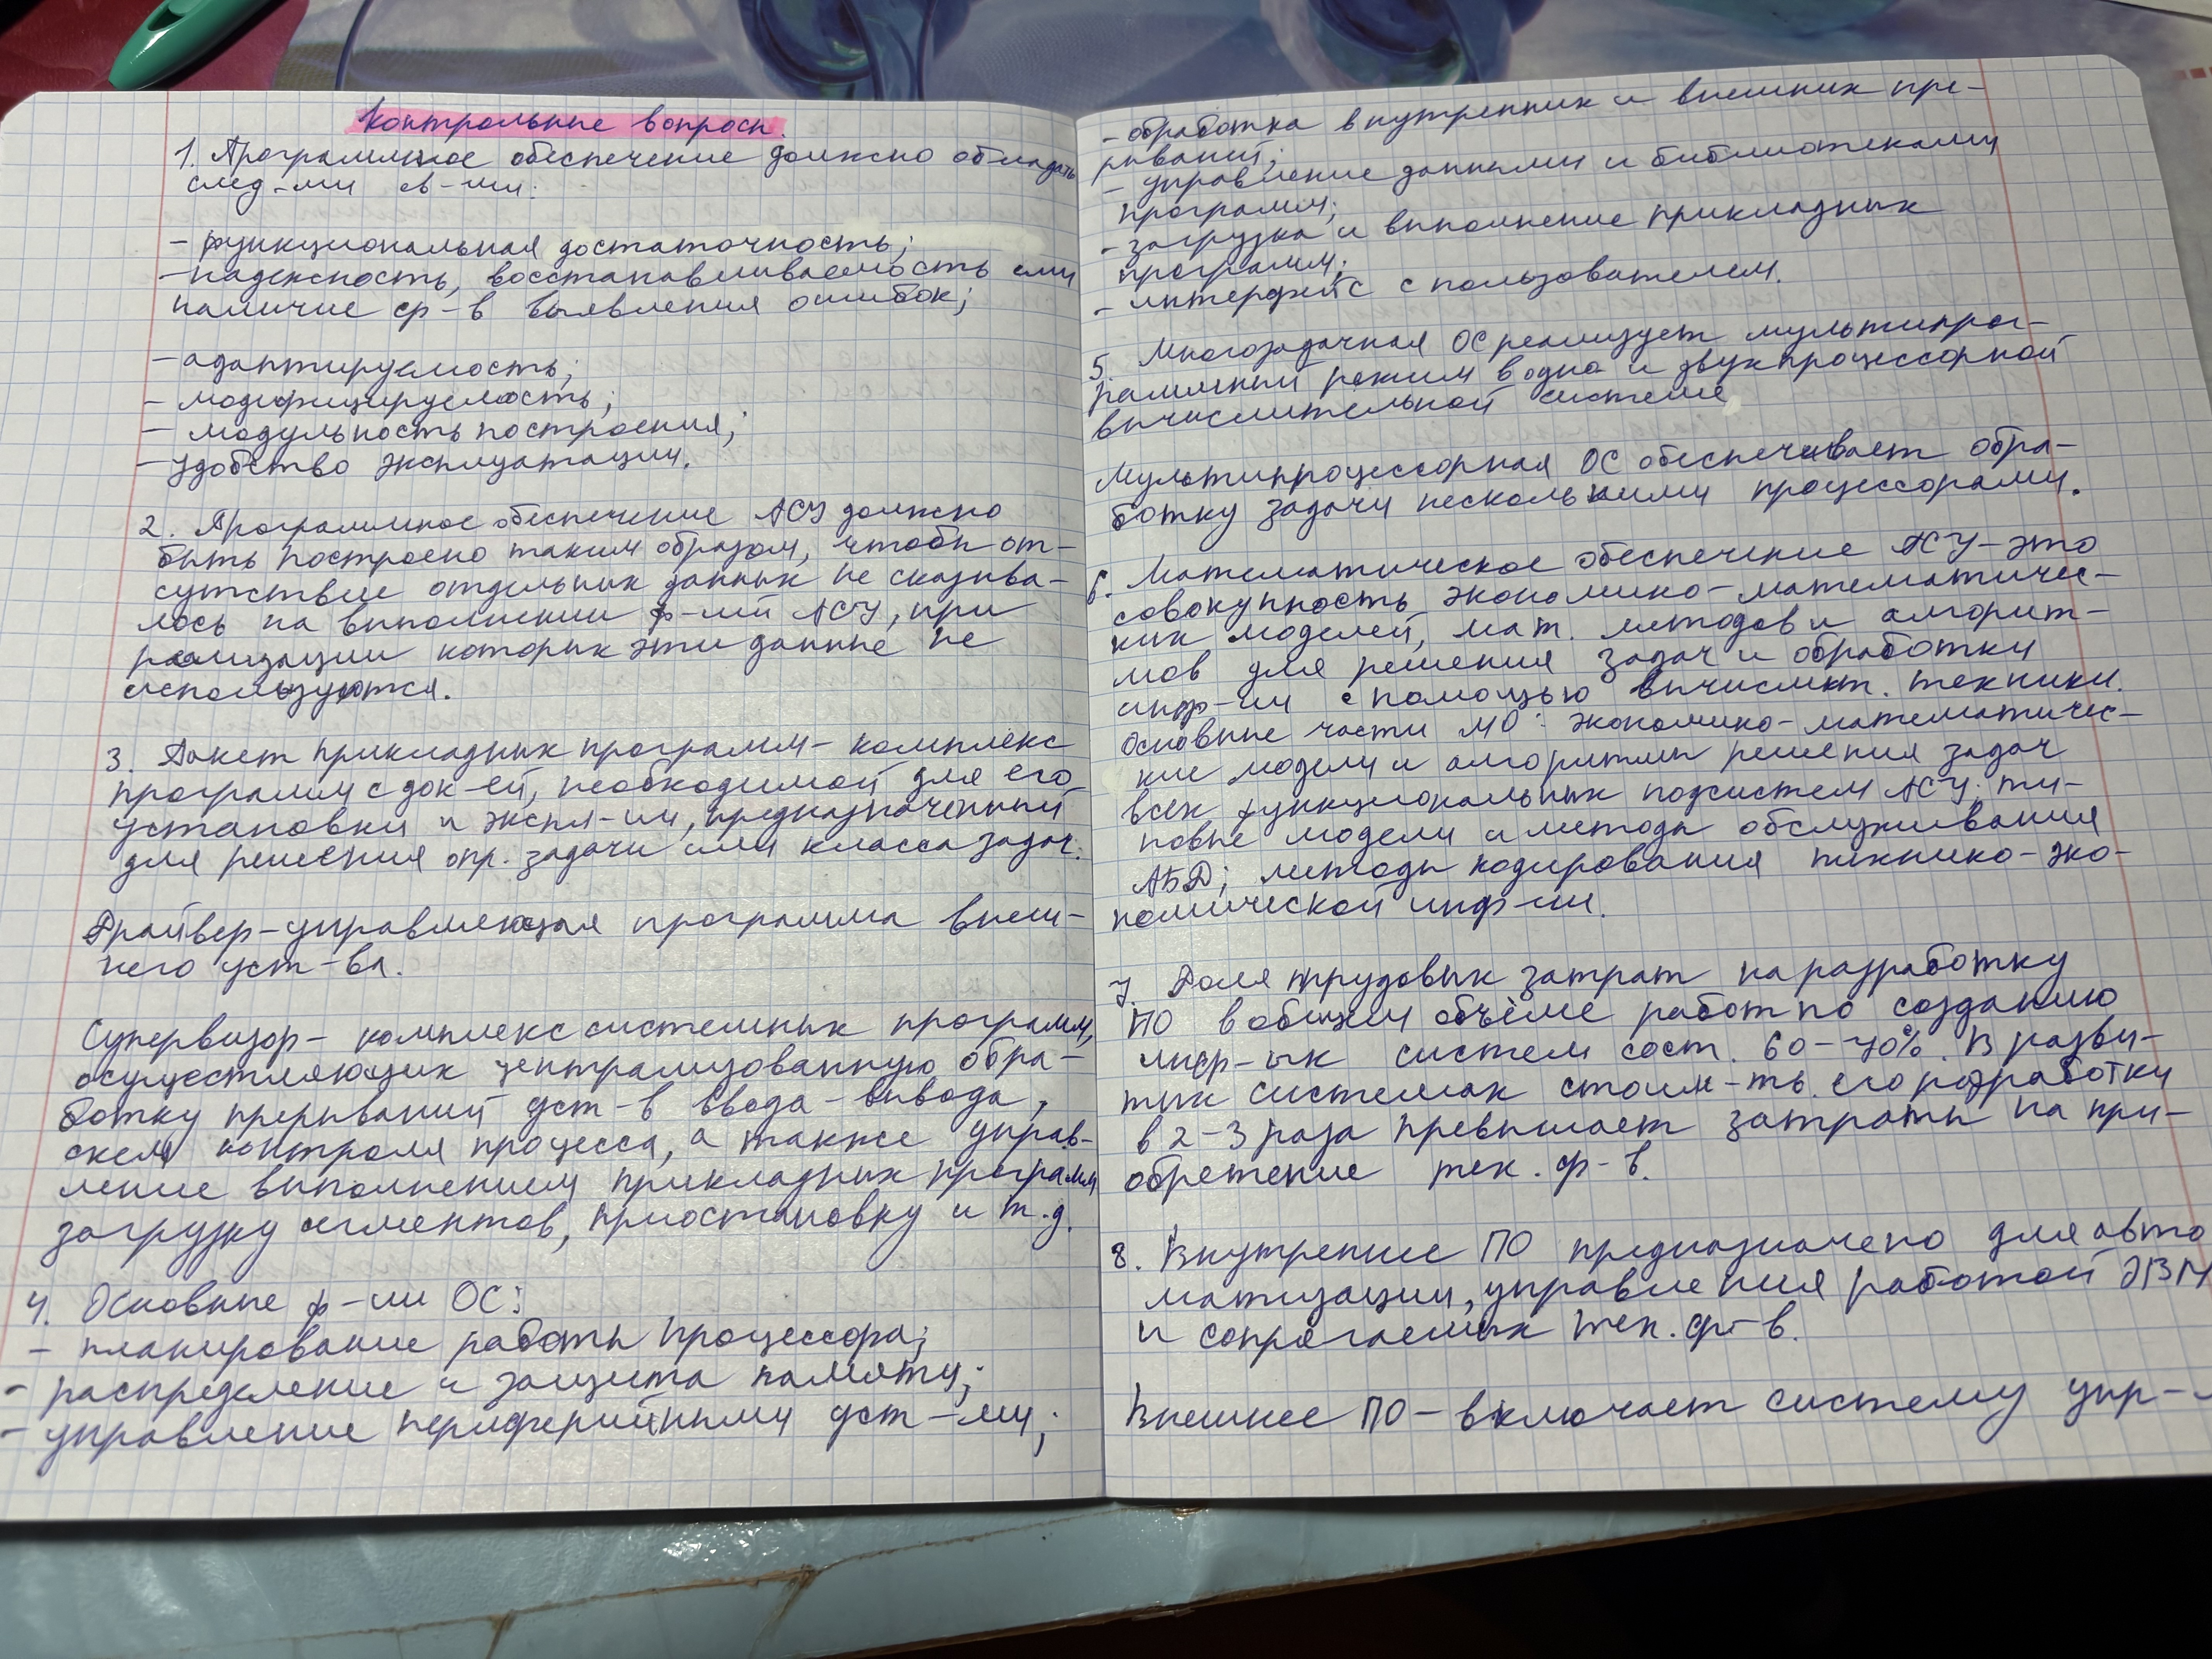 Контрольные вопросы.
1. Программное обеспечение должно обладать
след-ми св-ми:
- функциональная достаточность;
- надежность, восстанавливаемость или
наличие ср-в выявления ошибок;
- адаптируемость;
- модифицируемость;
- модульность построения;
- удобство эксплуатации.
2. Программное обеспечение АСУ должно
быть построено таким образом, чтобы от-
сутствие отдельных данных не сказыва-
лось на выполнении ф-ий АСУ, при
реализации которых эти данные не
используются.
3. Пакет прикладных программ - комплекс
программ с док-ей, необходимой для его
установки и экспл-ии, предназначенный
для решения опр. задачи или класса задач.
Драйвер - управляющая программа внеш-
него уст-ва.
Супервизор - комплекс системных программ,
осуществляющих централизованную обра-
ботку прерываний уст-в ввода-вывода,
схем контроля процесса, а также управ-
ление выполнением прикладных программ
загрузку сегментов, приостановку и т.д.
4. Основные ф-ии ОС:
- планирование работы процессора;
- распределение и защита памяти;
- управление периферийными уст-ми;
- обработка внутренних и внешних пре-
рываний;
- управление данными и библиотеками
программ;
- загрузка и выполнение прикладных
программ;
- интерфейс с пользователем.
5. Многозадачная ОС реализует мультипрог-
раммный режим в одно и двухпроцессорной
вычислительной системе
Мультипроцессорная ОС обеспечивает обра-
ботку задачи несколькими процессорами.
6. Математическое обеспечение АСУ - это
совокупность экономико-математичес-
ких моделей, мат. методов и алгорит-
мов для решения задач и обработки
инф-ии с помощью вычислит. техники.
Основные части МО: экономико-математичес-
кие модели и алгоритмы решения задач
всех функциональных подсистем АСУ. ти-
повые модели и методы обслуживания
АБД; методы кодирования технико-эко-
номической инф-ии.
7. Доля трудовых затрат на разработку
ПО в общем объёме работ по созданию
инф-ых систем сост. 60-70%. В разви-
тых системах стоим-ть его разработки
в 2-3 раза превышает затраты на при-
обретение тех. ср-в.
8. Внутреннее ПО предназначено для авто
матизации, управления работой ЭВМ
и сопрягаемых тех. ср-в.
Внешнее ПО - включает систему упр-